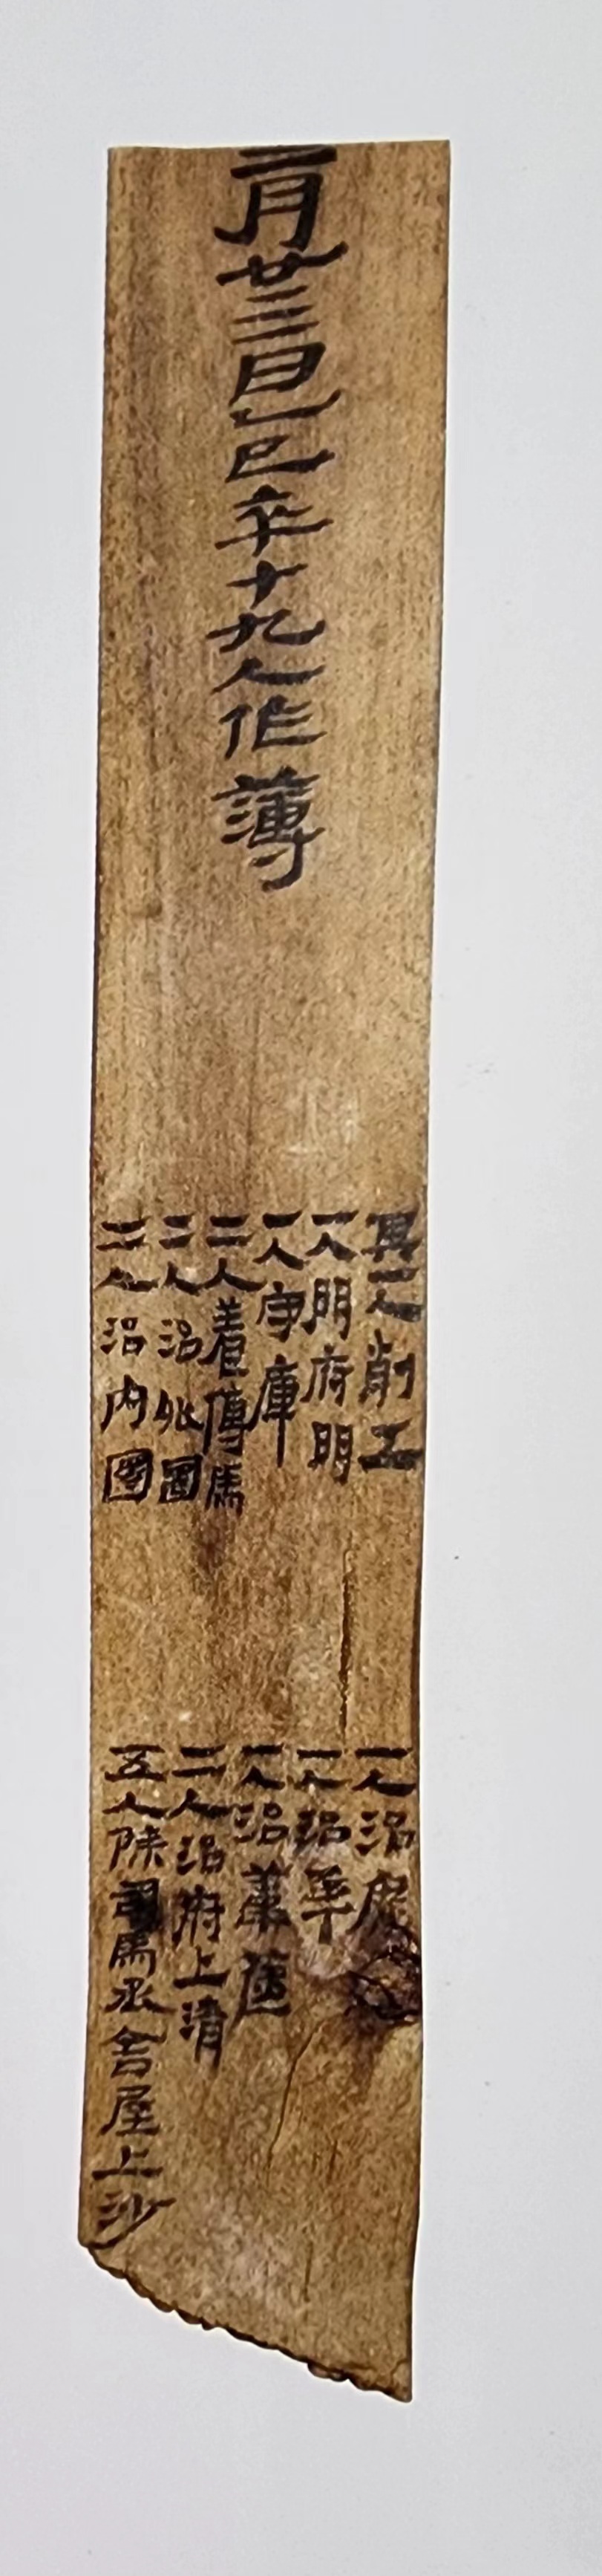 二月廿三日乙巳卒十九人作薄
其一人削工
一人門府門
一人守庫
二人養傳馬
二人治外園
二人治内園
一人治
一人治革
一人治
二人治府上清
五人除司馬丞舍屋上沙